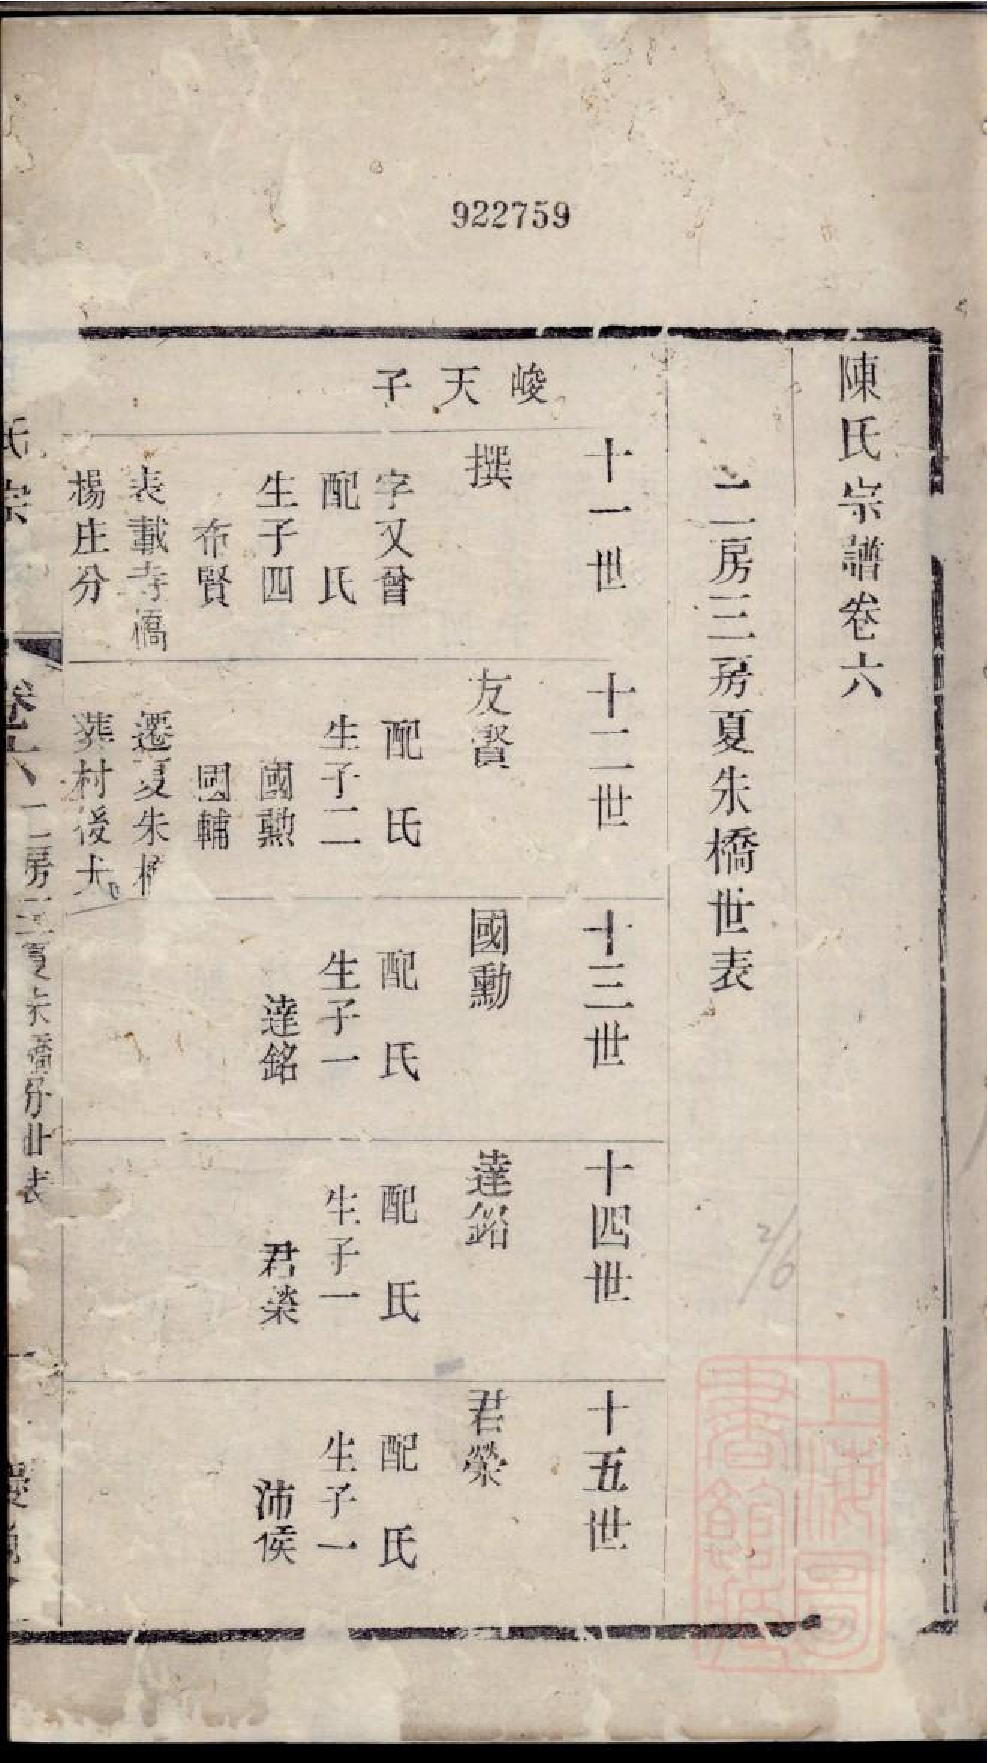 922759
陳氏宗譜卷六
二房三房夏朱橋世表
峻天子
十一世
撰
字又曾
配氏
生子四
布賢
表載寺橋
楊庄分
十二世
友賢
配氏
生子二
國勲
國輔
遷夏朱橋
葬村後大
十三世
國勳
配氏
生子一
達銘
十四世
達銘
配氏
生子一
君榮
十五世
君榮
配氏
生子一
沛侯
氏宗
卷六
二房三夏朱橋分世表
一
2/6
上海圖書館藏